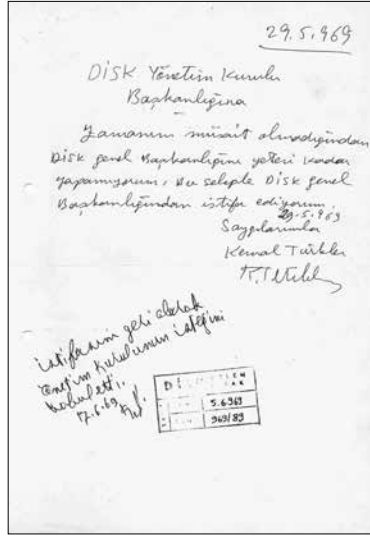 29.5.969
DİSK Yönetim Kurulu
Başkanlığına
Zamanım müsait olmadığından
DİSK genel Başkanlığını yeteri kadar
yapamıyorum, bu sebeple DİSK genel
Başkanlığından istifa ediyorum.
29.5.969
Saygılarımla
Kemal Türkler
istifasını geri alarak
Yönetim Kurulunun isteğini
kabul etti.
17.6.69
5.6.969
969/89